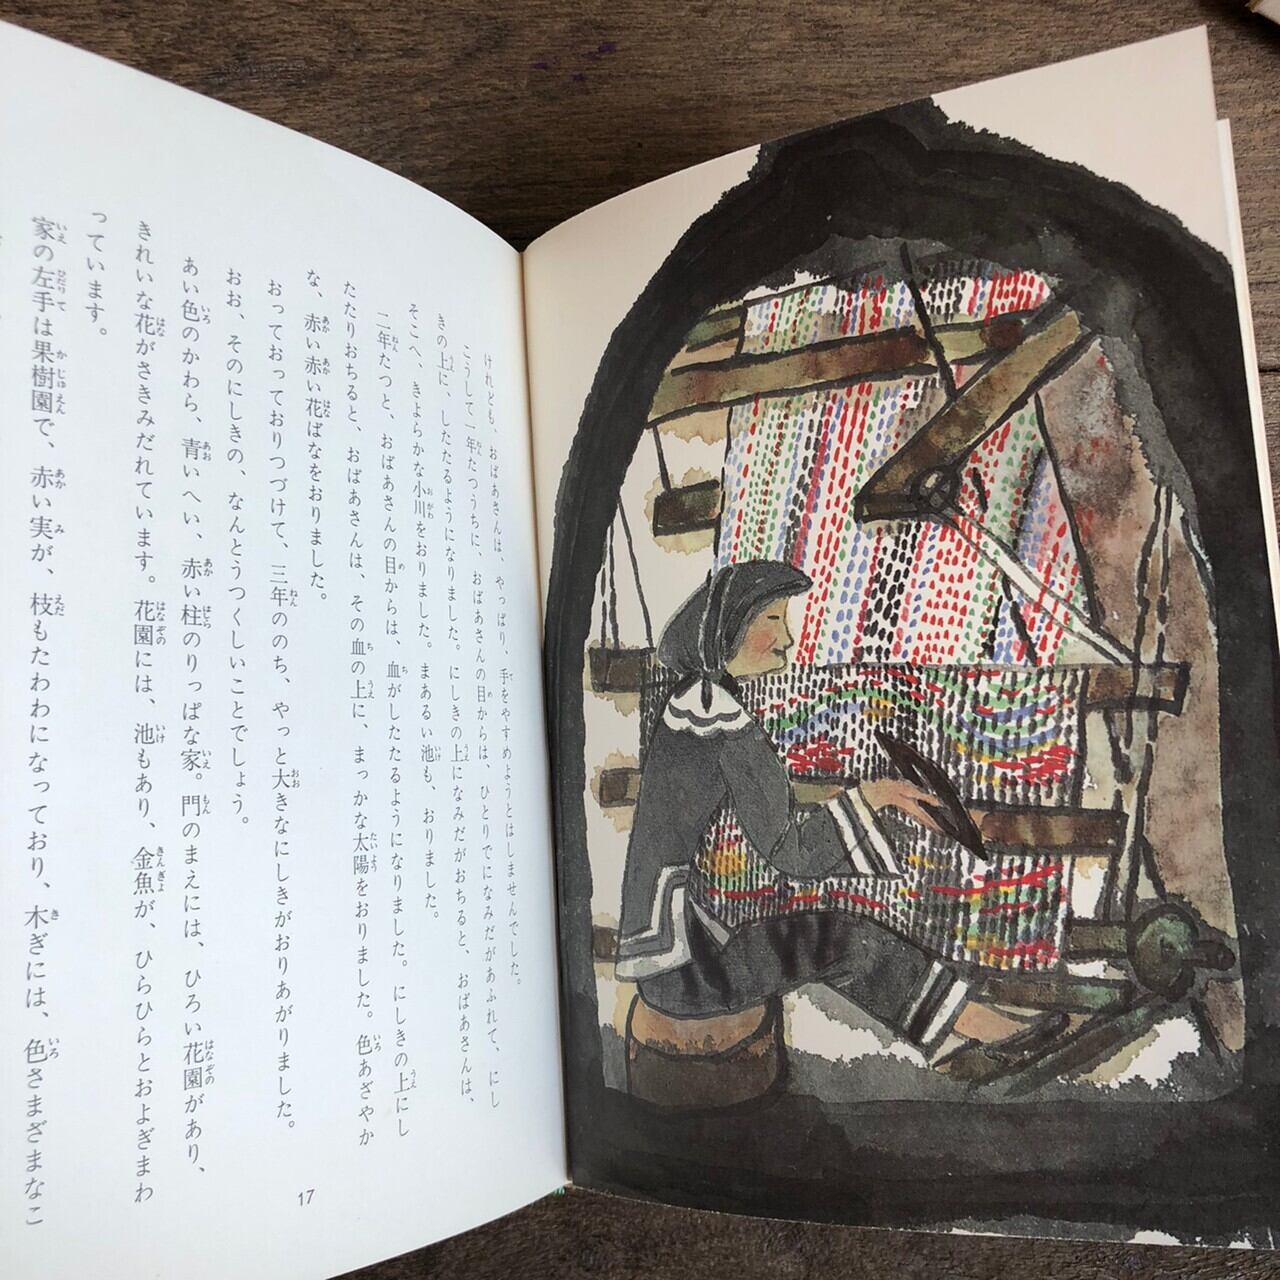 けれども、おばあさんは、やっぱり、手をやすめようとはしませんでした。
こうして一年たつうちに、おばあさんの目からは、ひとりでになみだがあふれて、にし
きの上に、したたるようになりました。にしきの上になみだがおちると、おばあさんは、
そこへ、きよらかな小川をおりました。まあるい池も、おりました。
二年たつと、おばあさんの目からは、血がしたたるようになりました。にしきの上にし
たたりおちると、おばあさんは、その血の上に、まっかな太陽をおりました。色あざやか
な、赤い赤い花ばなをおりました。
おっておっておりつづけて、三年ののち、やっと大きなにしきがおりあがりました。
おお、そのにしきの、なんとうつくしいことでしょう。
あい色のかわら、青いへい、赤い柱のりっぱな家。門のまえには、ひろい花園があり、
きれいな花がさきみだれています。花園には、池もあり、金魚が、ひらひらとおよぎまわ
っています。
家の左手は果樹園で、赤い実が、枝もたわわになっており、木ぎには、色さまざまなこ
17